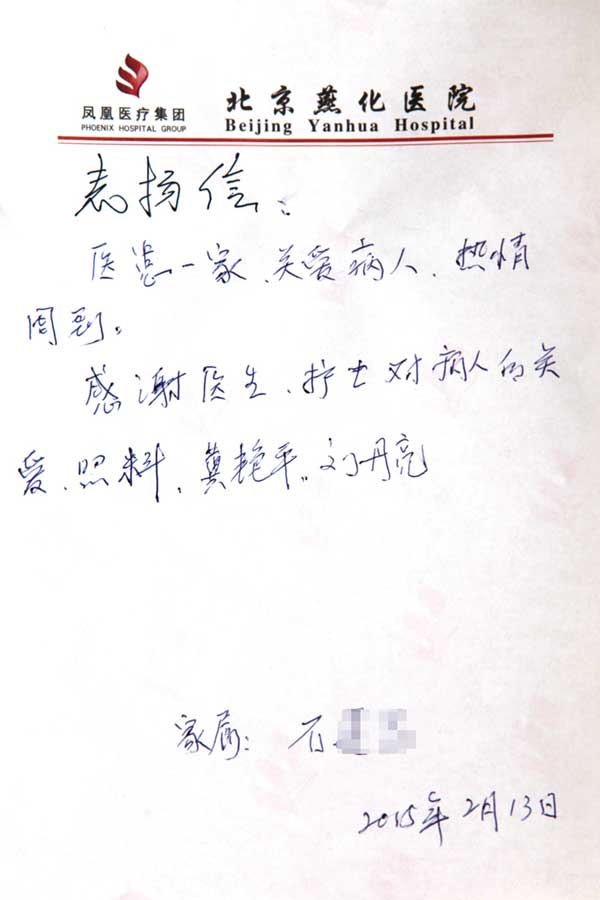 凤凰医疗集团
PHOENIX HOSPITAL GROUP
北京燕化医院
Beijing Yanhua Hospital
表扬信:
医患一家、关爱病人、热情
周到。
感谢医生、护士对病人的关
爱、照料,冀艳平、刘丹亮
家属: 石
2015年2月13日